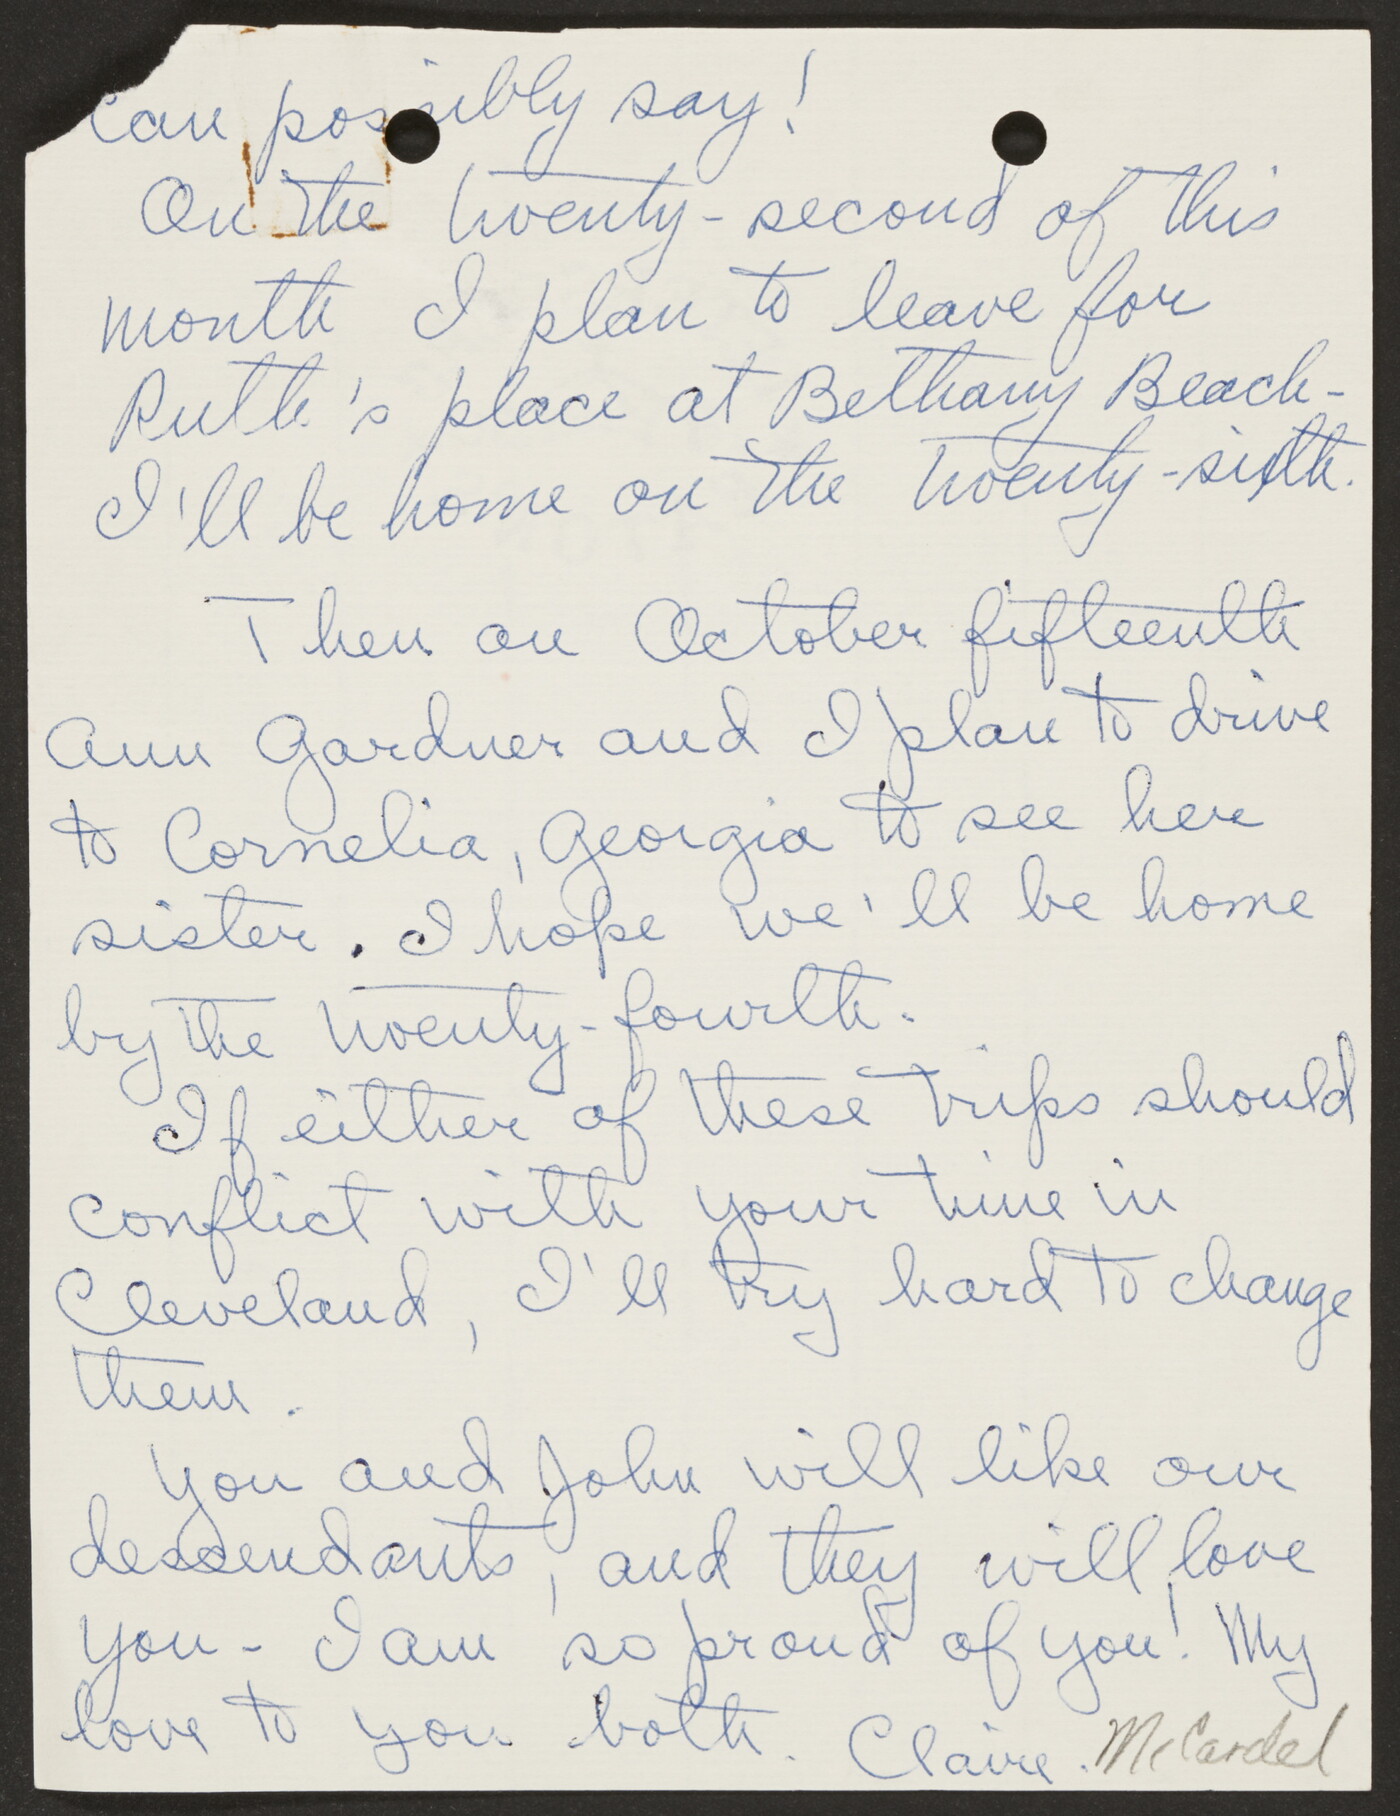 can possibly say!
On the twenty-second of this
month I plan to leave for
Ruth's place at Bethany Beach-
I'll be home on the twenty-sixth.
Then on October fifteenth
Ann Gardner and I plan to drive
to Cornelia, Georgia to see her
sister. I hope we'll be home
by the twenty-fourth.
If either of these trips should
conflict with your time in
Cleveland, I'll try hard to change
them.
You and John will like our
descendants, and they will love
you- I am so proud of you! My
love to you both. Claire. McCardel